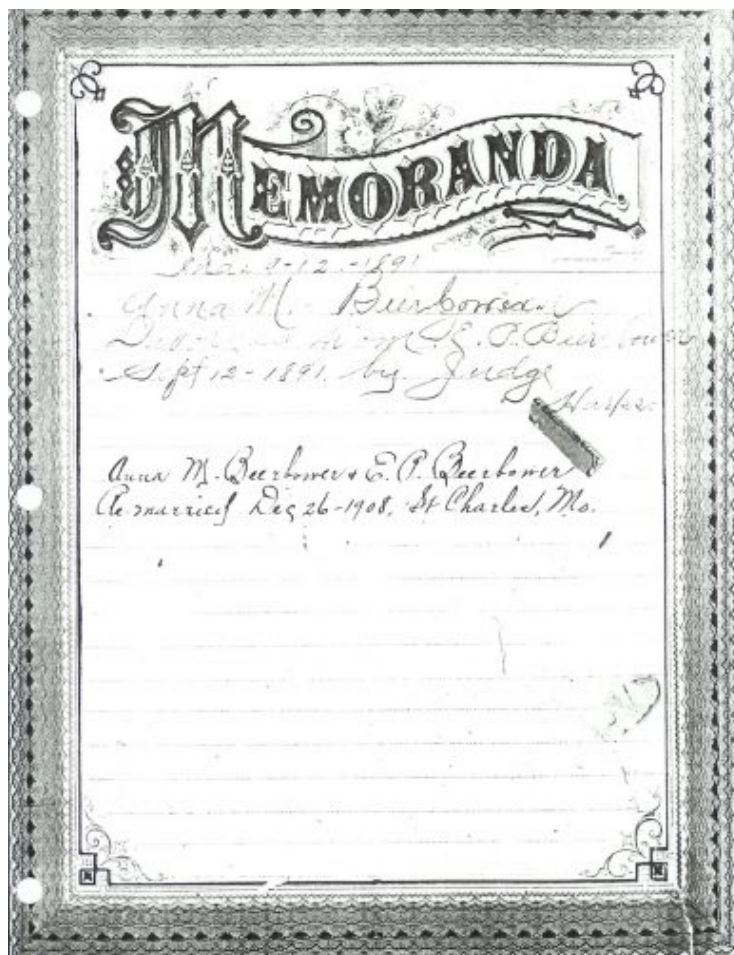 MEMORANDA.
9-12-1891
Anna M. Beerbower
Divorced from E. P. Beerbower
Sept 12-1891. by Judge
Harper
Anna M. Beerbower & E. P. Beerbower
Re-married Dec 26-1908, St Charles, Mo.